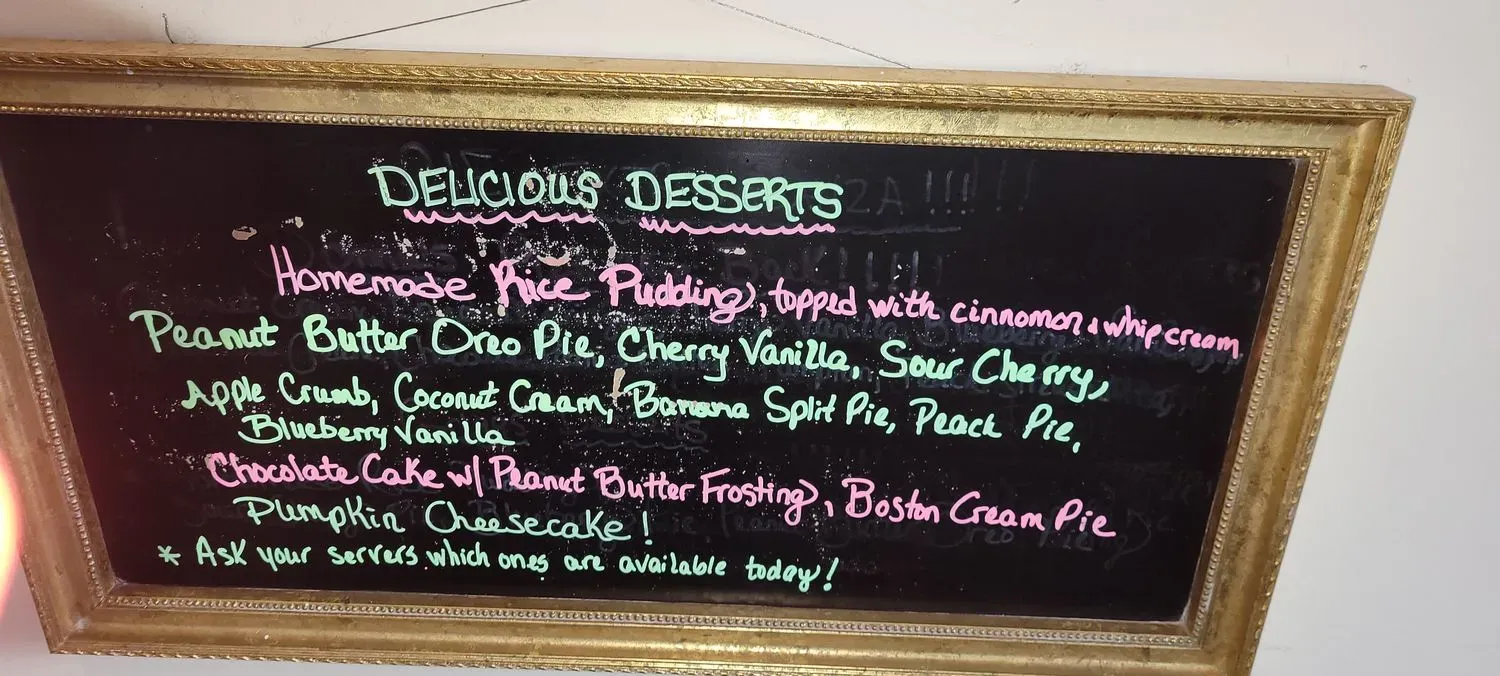 DELICIOUS DESSERTS
Homemade Rice Pudding, topped with cinnomon & whip cream
Peanut Butter Oreo Pie, Cherry Vanilla, Sour Cherry,
Apple Crumb, Coconut Cream, Banana Split Pie, Peach Pie,
Blueberry Vanilla
Chocolate Cake w/ Peanut Butter Frosting, Boston Cream Pie
Pumpkin Cheesecake!
* Ask your servers which ones are available today!